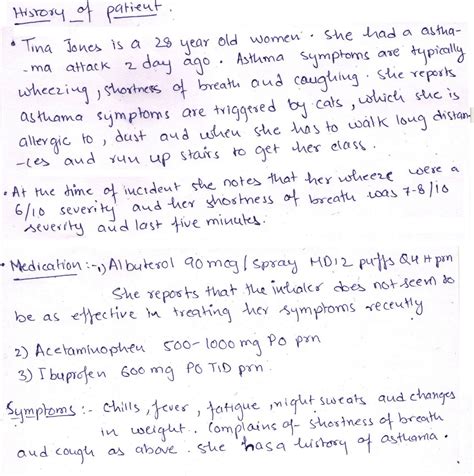 History of patient.
• Tina Jones is a 28 year old women. She had a astha-
-ma attack 2 day ago. Asthma symptoms are typically
wheezing, shortness of breath and caughing. She reports
asthama symptoms are triggered by cats, which she is
allergic to, dust and when she has to walk long distan
-ces and run up stairs to get her class.
• At the time of incident she notes that her wheeze were a
6/10 severity and her shortness of breath was 7-8/10
severity and last five minutes.
• Medication :- 1) Albuterol 90 mcg/spray MDI 2 puffs Q4H prn
She reports that the inhaler does not seem so
be as effective in treating her symptoms recently
2) Acetaminophen 500-1000 mg PO prn
3) Ibuprofen 600 mg PO TID prn.
Symptoms :- Chills, fever, fatigue, night sweats and changes
in weight. Complains of- shortness of breath
and cough as above. She has a history of asthama.